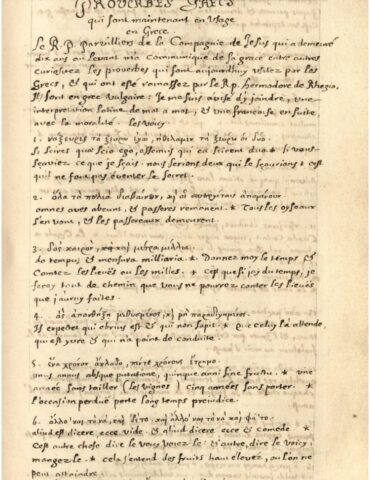 PROVERBES GRECS
qui sont maintenant en Usage
en Grece
Le R. P. Parzilliers de la Compagnie de Jesus qui a demeuré
dix ans au levant ma Communiqué de sa grace entre autres
curieusez les proverbes qui sont aujourdhuy usitez par les
Grecs, et qui ont esté ramassez par le R. p. hermodore de Rhegio,
Ils sont en grec Vulgaire. Je me suis avisé dy joindre, une
interpretation latine de mot a mot, et une françoise en suite,
avec la moralité. les voicy
1.
Si scires quae scio ego, essemus qui ea scirent duo * si vous
sçaviez ce que je sçais, nous serions deux qui le sçaurians * cest
que ne faut pas éventer le secret.
2. ὅλα τὰ πουλιὰ
omnes aves abeunt, et passeres remanent * Tous les oyseaux
sen vont, et les passereaux demeurent.
3. δός καιρὸν, καὶ μέτρα μίλλια
da tempus et mensura milliaria. * Donnez moy le temps et
Contez les lieues ou les milles. * Cest que si jay du temps, je
feray tout de chemin que vous ne pourrez conter les lieues
que jauray faites.
4.
Il expectet qui ebrius est et qui non sapit. * que celuy la attende,
qui est yure et qui na point de conduite.
5. ἕνα χρόνον
unus annus absque putatione, quinque anni sine fructu. * une
année sans tailler (les vignes) cinq années sans porter. *
l'occasion perdue porte long temps prejudice.
6.
aliud est dicere ecce vide, et aliud est dicere ecce et comede *
Cest autre chose dire le voicy voiez le: et autre, dire le voicy,
mangez le. * cela sentend des fruits haut elevez, ou l'on ne
peut attaindre.